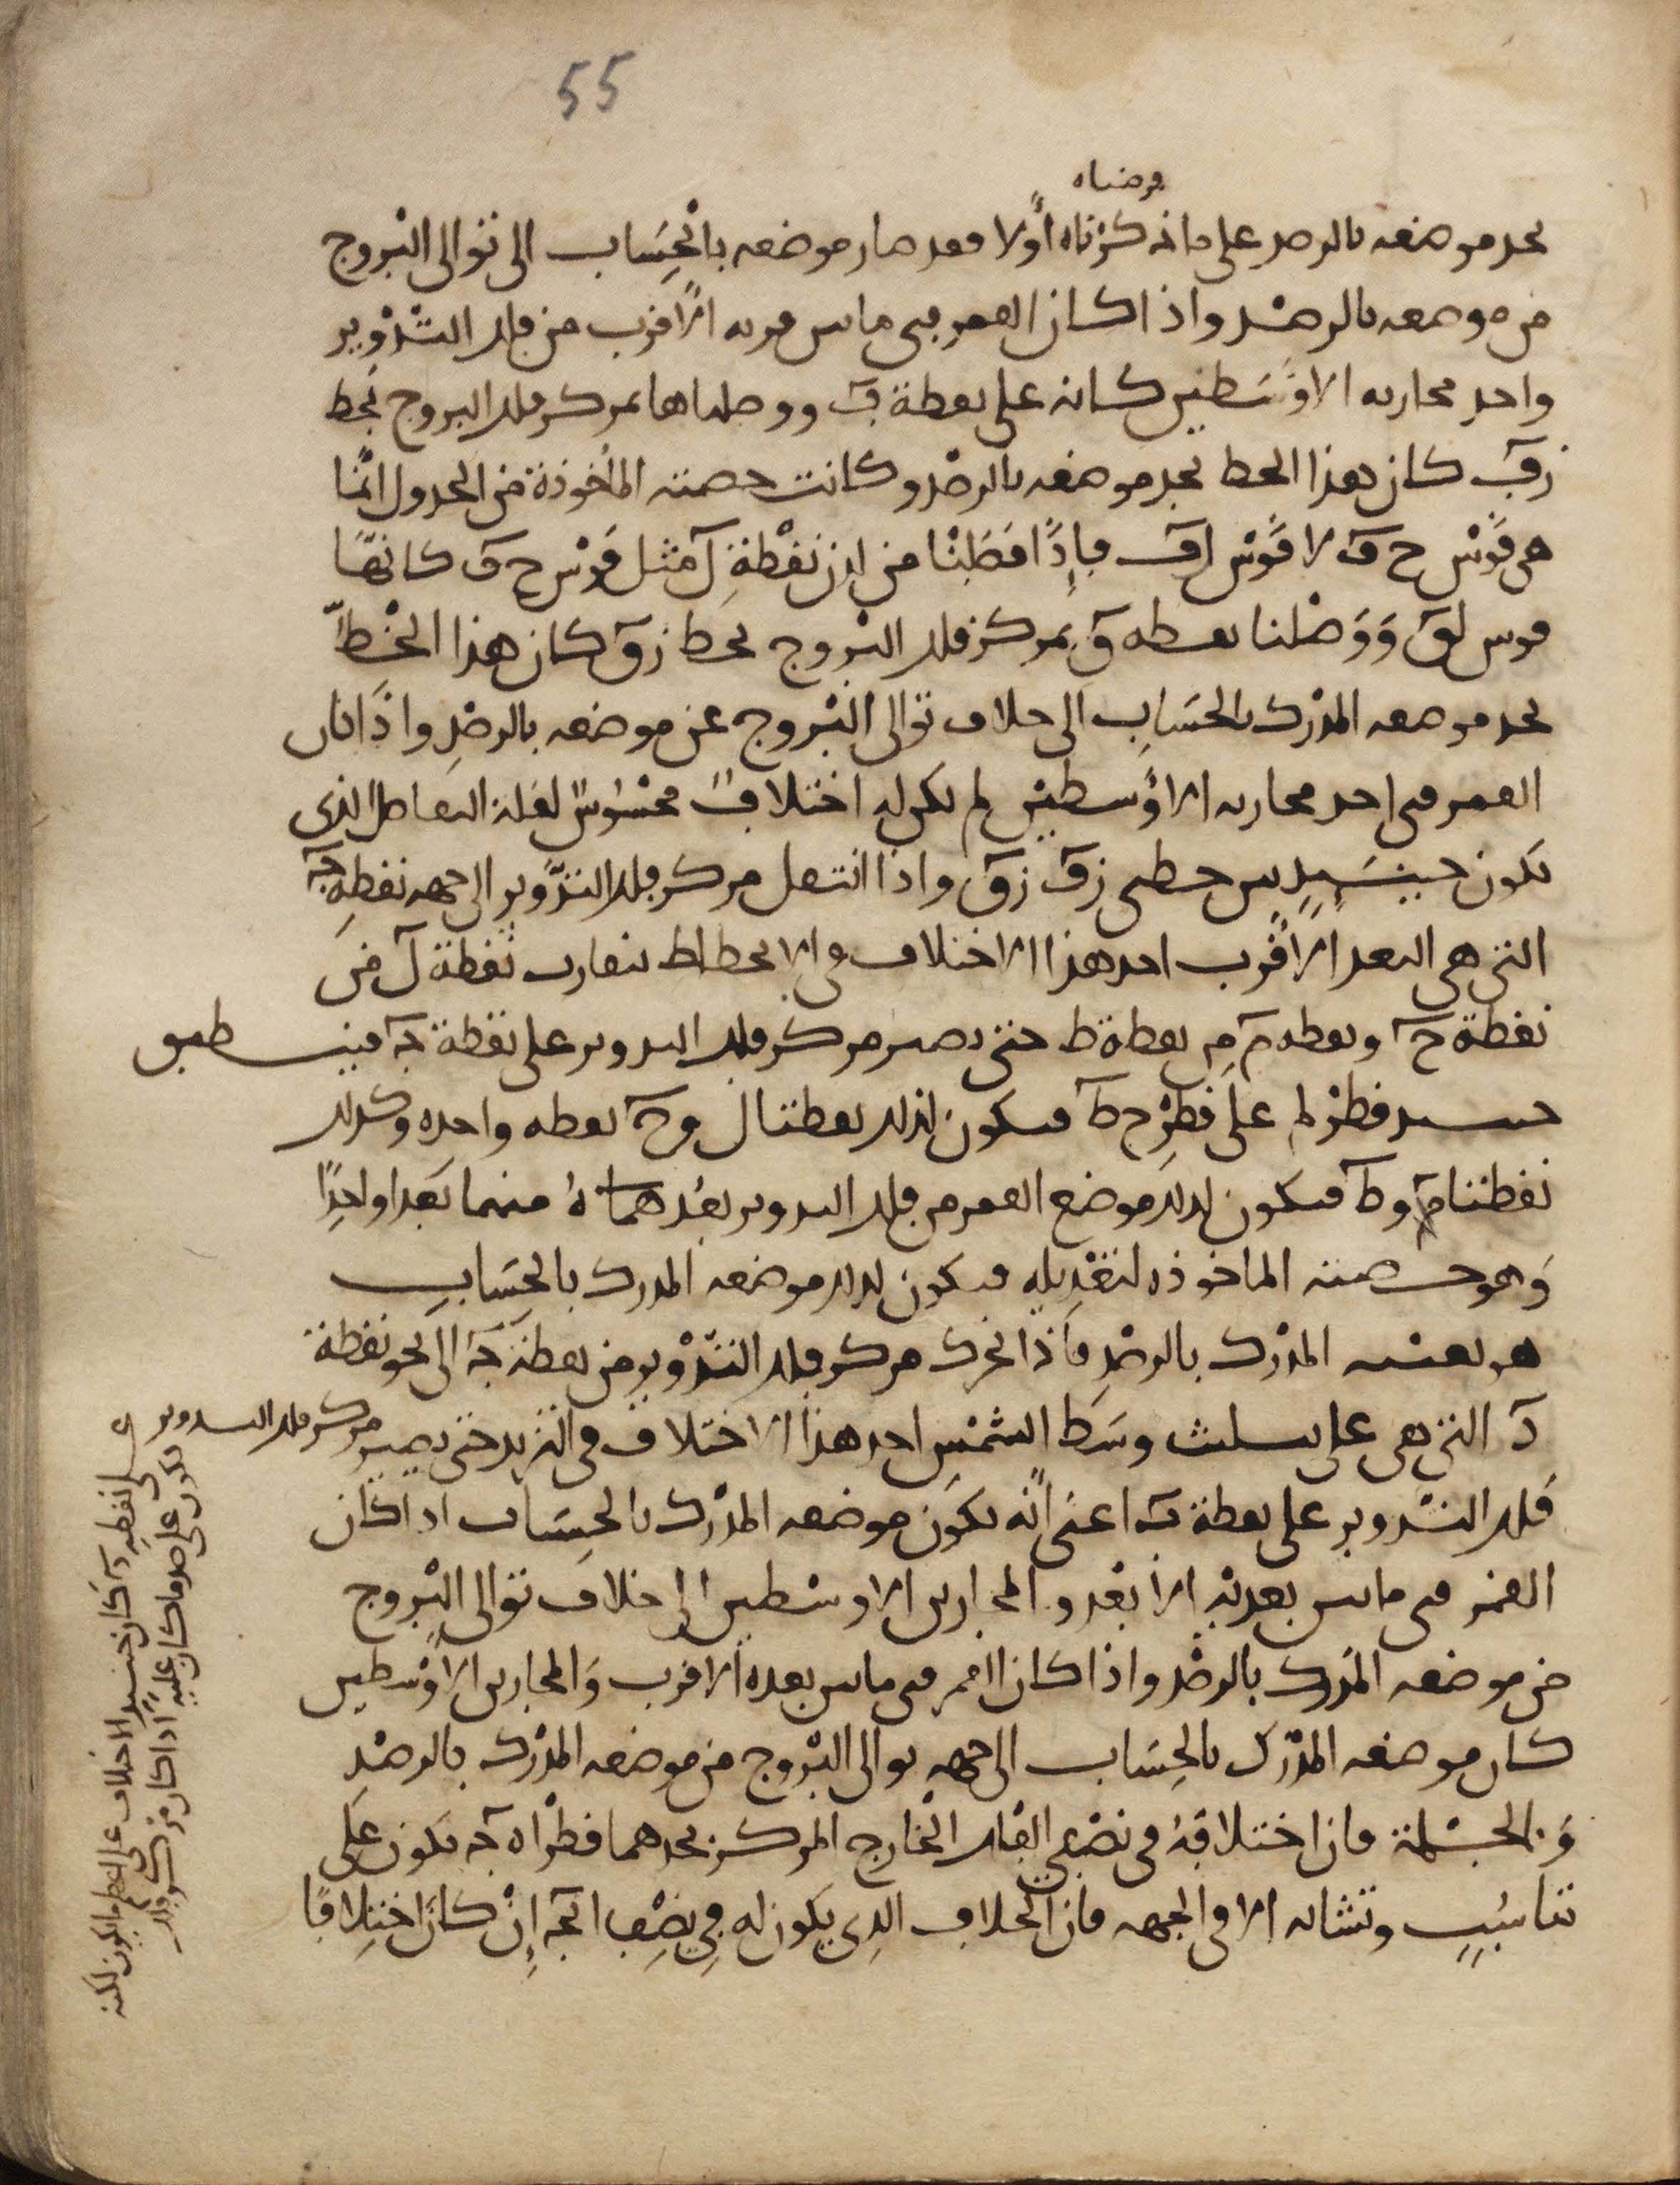 55
فرضناه
يحد موضعه بالرصد على ما ذكرناه أولا فقد صار موضعه بالحساب الى توالى البروج
من موضعه بالرصد واذا كان القمر فى ما بين قربه الاقرب من فلك التدوير
واحد مجازيه الاوسطين كانه على نقطة ف ووصلناها بمركز فلك البروج بخط
زف كان هذا الخط يحد موضعه بالرصد وكانت حصته المأخوذة من الجدول انما
هى قوس ح ف لا قوس لف فاذا فصلنا من لدن نقطة ل مثل قوس ح ف كانها
قوس لق ووصلنا نقطه ق بمركز فلك البروج بخط زق كان هذا الخط
يحد موضعه المدرك بالحساب الى خلاف توالى البروج عن موضعه بالرصد واذا كان
القمر فى احد مجازيه الاوسطين لم يكن له اختلاف محسوس لقلة التفاضل الذى
يكون حينئذ بين خطى زف زق واذا انتقل مركز فلك التدوير الى جهه نقطة جـ
التى هى البعد الاقرب اخذ هذا الاختلاف فى الانحطاط لتقارب نقطة ل من
نقطة ح ونقطه م من نقطة ط حتى يصير مركز فلك التدوير على نقطة جـ فينطبق
حينئذ قطر لم على قطر ح ط فيكون لذلك نقطتا ل وح نقطه واحده وكذلك
نقطتا م وط فيكون لذلك موضع القمر من فلك التدوير بعد هما منهما بعدا واحدا
وهو حصته الماخوذه لتعديله فيكون لذلك موضعه المدرك بالحساب
هو بعينه المدرك بالرصد فاذا تحرك مركز فلك التدوير من نقطة جـ الى نحو نقطة
د التى هى على تسليث وسط الشمس اخذ هذا الاختلاف فى التزيد حتى يصير مركز فلك التدوير
فلك التدوير على نقطة د اعنى انه يكون موضعه المدرك بالحساب اذا كان
القمر فى ما بين بعديه الابعد والمجازين الاوسطين الى خلاف توالى البروج
من موضعه المدرك بالرصد واذا كان القمر فى ما بين بعده الاقرب والمجازين الاوسطين
كان موضعه المدرك بالحساب الى جهه توالى البروج من موضعه المدرك بالرصد
وبالجملة فان اختلافه فى نصفى الفلك الخارج المركز يحدهما قطر اه جـ يكون على
تناسب وتشابه الا فى الجهه فان الخلاف الذى يكون له فى نصف ابجـ إن كان اختلافا
على نقطه د كان حينئذ الاختلاف على اعظم ما يكون لكنه
يكون على ضد ما كان عليه اذا كان مركز فلك